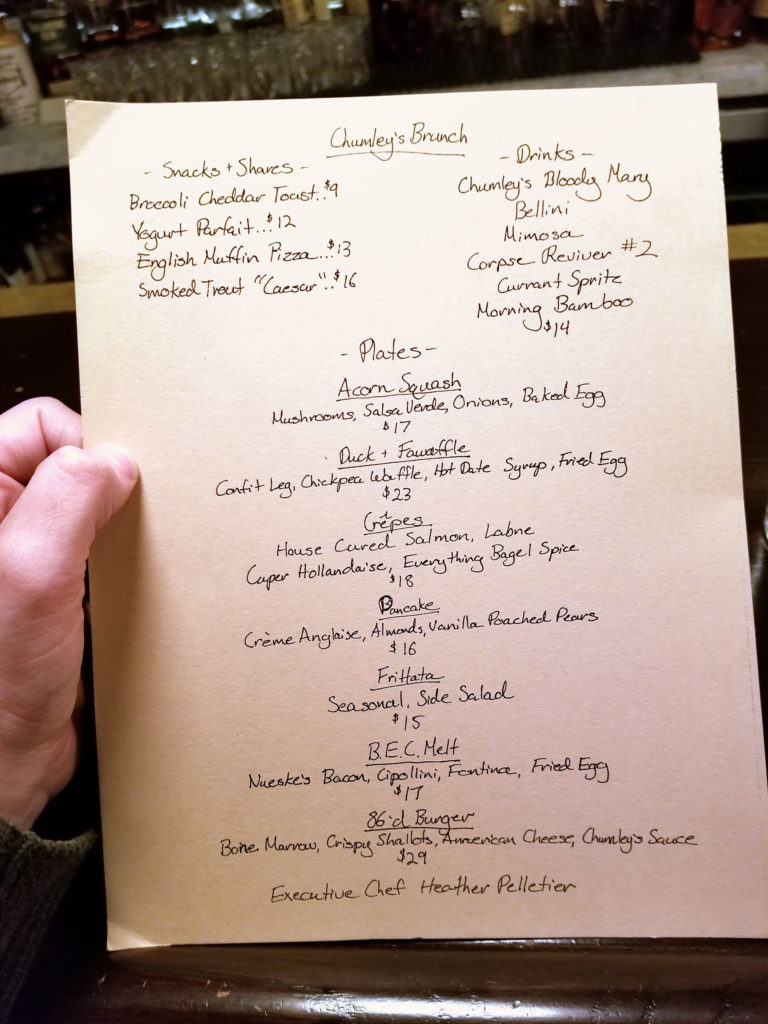 Chumley's Brunch
- Snacks + Shares -
Broccoli Cheddar Toast..$9
Yogurt Parfait...$12
English Muffin Pizza...$13
Smoked Trout "Caesar"..$16
- Drinks -
Chumley's Bloody Mary
Bellini
Mimosa
Corpse Reviver #2
Currant Spritz
Morning Bamboo
$14
- Plates -
Acorn Squash
Mushrooms, Salsa Verde, Onions, Baked Egg
$17
Duck + Fawaffle
Confit Leg, Chickpea Waffle, Hot Date Syrup, Fried Egg
$23
Crêpes
House Cured Salmon, Labne
Caper Hollandaise, Everything Bagel Spice
$18
Pancake
Crème Anglaise, Almonds, Vanilla Poached Pears
$16
Frittata
Seasonal, Side Salad
$15
B.E.C. Melt
Nueske's Bacon, Cipollini, Fontina, Fried Egg
$17
86'd Burger
Bone Marrow, Crispy Shallots, American Cheese, Chumley's Sauce
$29
Executive Chef Heather Pelletier